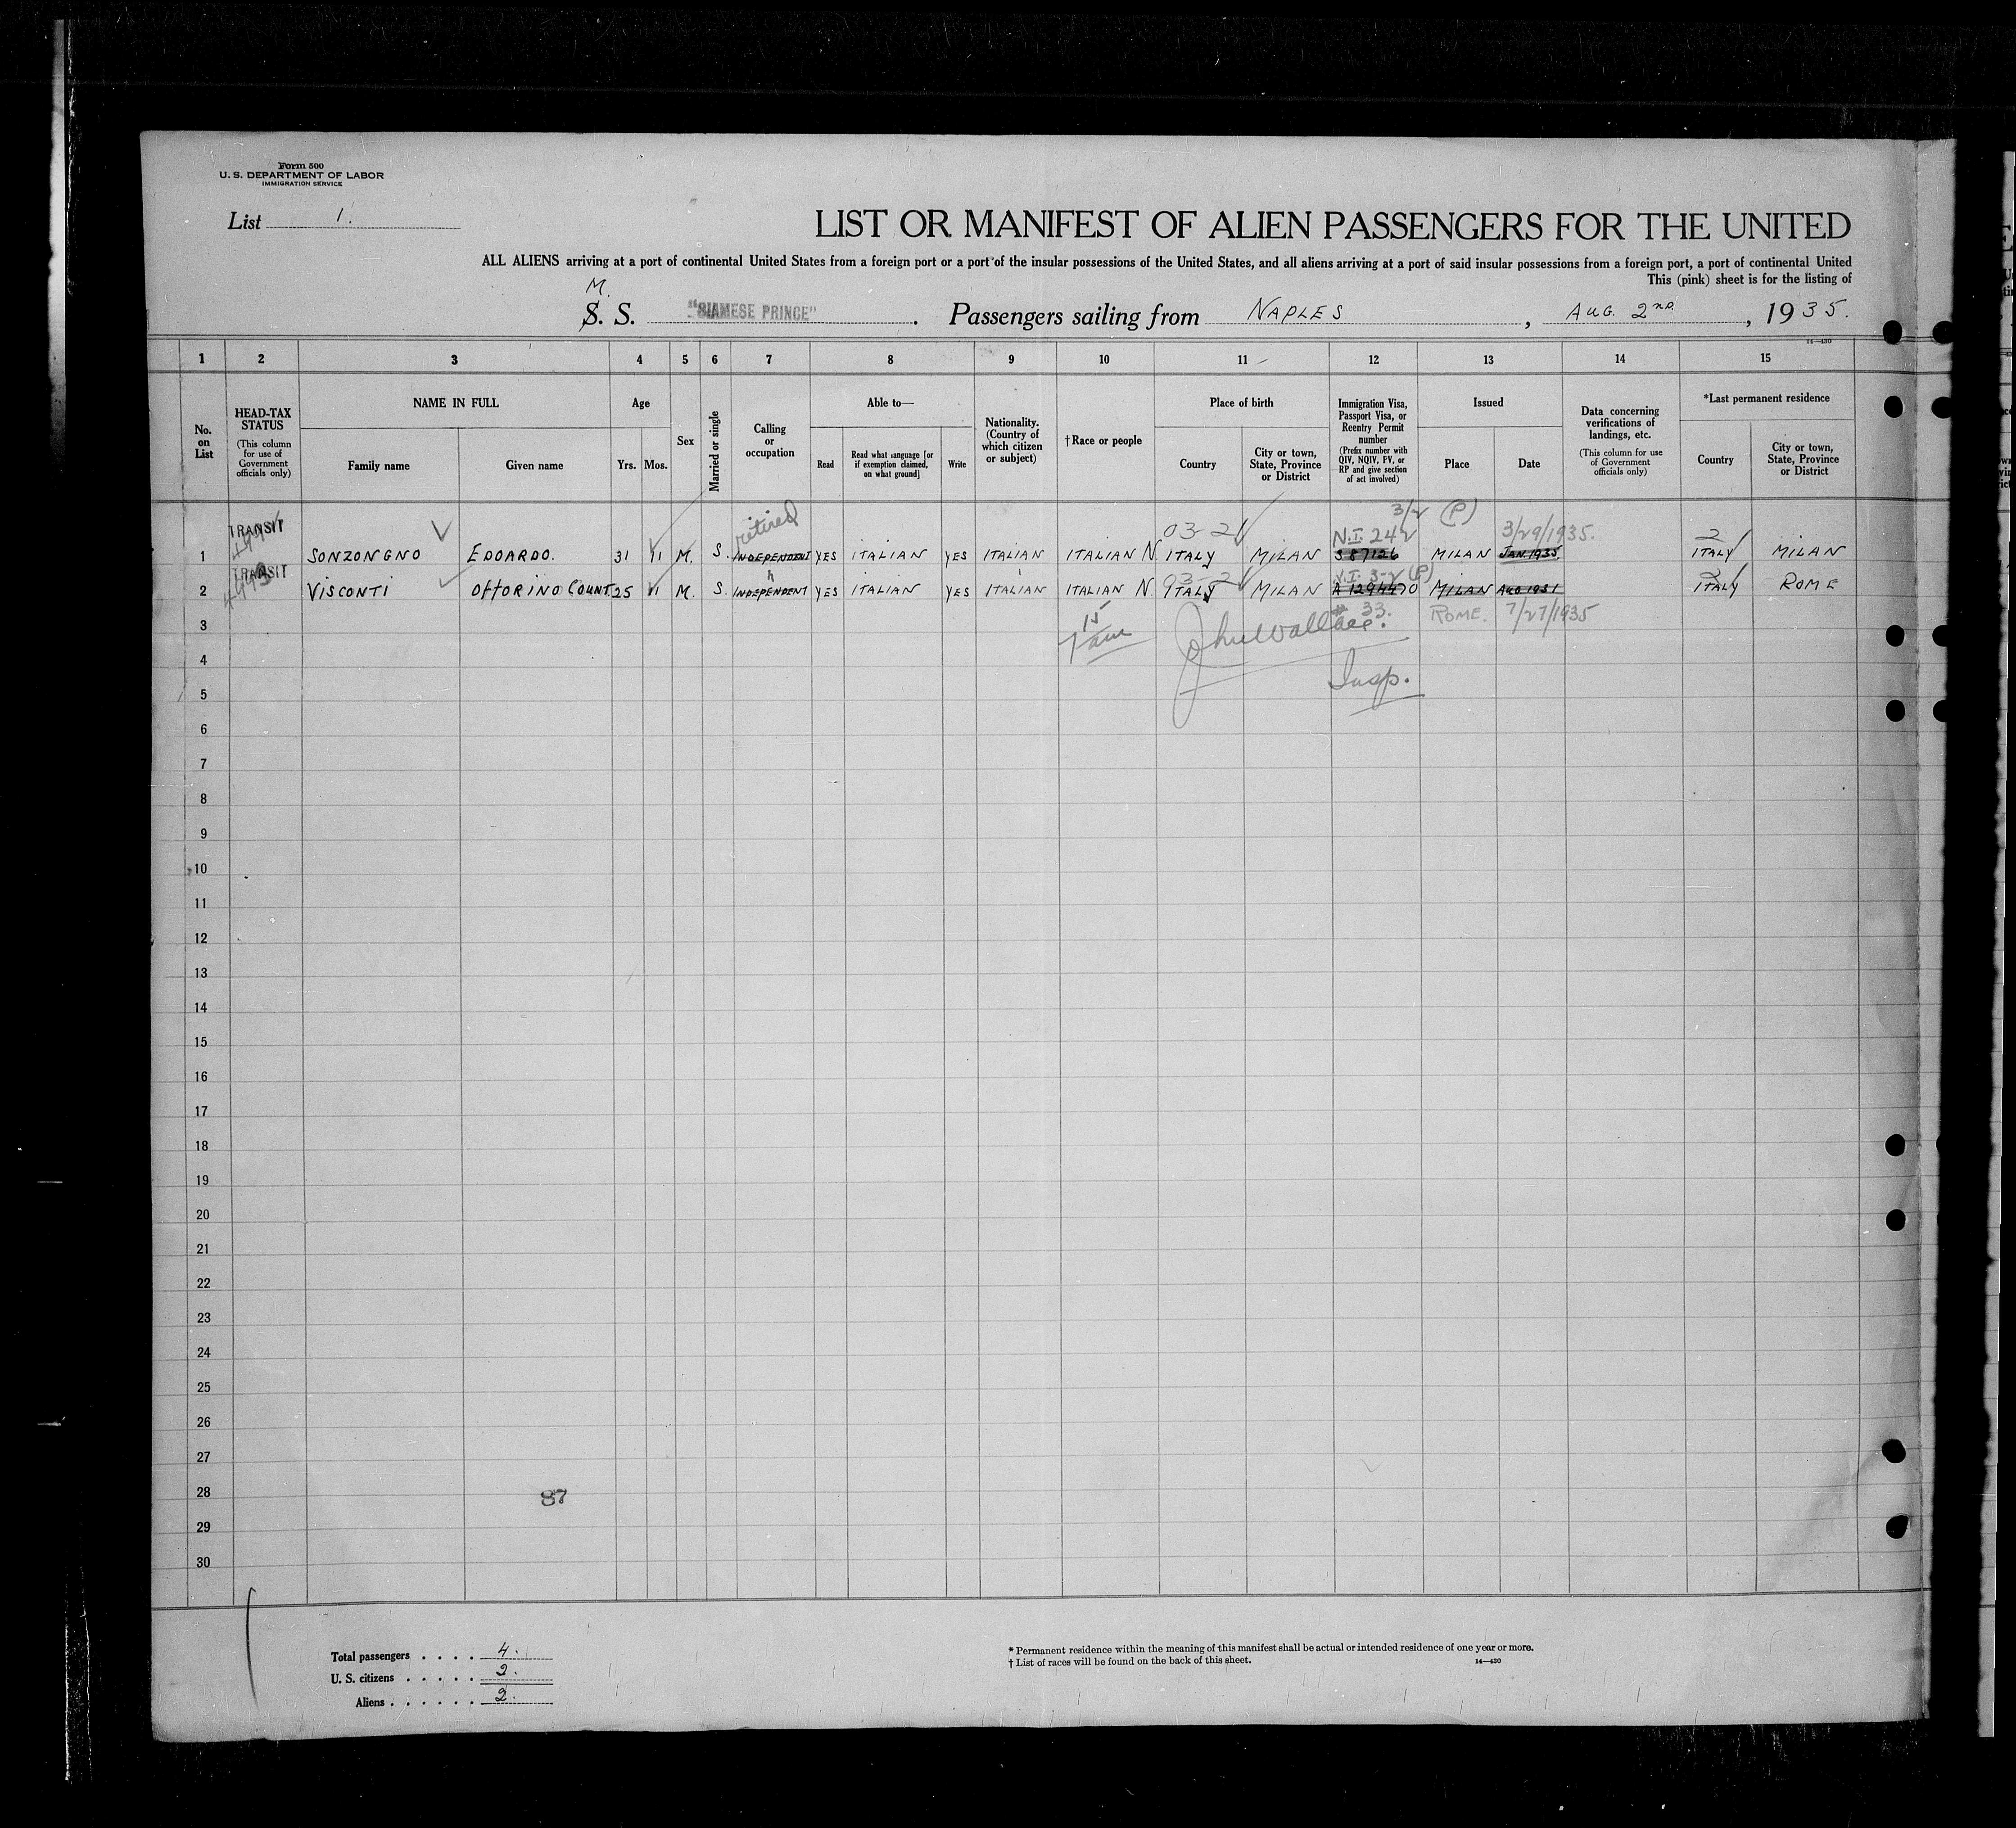 Form 500
U. S. DEPARTMENT OF LABOR
IMMIGRATION SERVICE
List 1.
LIST OR MANIFEST OF ALIEN PASSENGERS FOR THE UNITED
ALL ALIENS arriving at a port of continental United States from a foreign port or a port of the insular possessions of the United States, and all aliens arriving at a port of said insular possessions from a foreign port, a port of continental United
This (pink) sheet is for the listing of
M.
S. S. "SIAMESE PRINCE". Passengers sailing from NAPLES, AUG. 2ND, 1935.
14—430
1 2 3 4 5 6 7 8 9 10 11 12 13 14 15
No. on List
HEAD-TAX STATUS
(This column for use of Government officials only)
NAME IN FULL
Family name
Given name
Age
Yrs. Mos.
Sex
Married or single
Calling or occupation
Able to—
Read
Read what language [or if exemption claimed, on what ground]
Write
Nationality. (Country of which citizen or subject)
†Race or people
Place of birth
Country
City or town, State, Province or District
Immigration Visa, Passport Visa, or Reentry Permit number
(Prefix number with QIV, NQIV, PV, or RP and give section of act involved)
Issued
Place
Date
Data concerning verifications of landings, etc.
(This column for use of Government officials only)
*Last permanent residence
Country
City or town, State, Province or District
3/2 (P)
TRANSIT retired 03-2 N.I. 242 3/29/1935. 2
1 SONZONGNO EDOARDO. 31 11 M. S. INDEPENDENT YES ITALIAN YES ITALIAN ITALIAN N. ITALY MILAN S 87126 MILAN JAN 1935. ITALY MILAN
TRANSIT " N.I. 3-2 (P)
2 VISCONTI OTTORINO COUNT. 25 11 M. S. INDEPENDENT YES ITALIAN YES ITALIAN ITALIAN N ITALY MILAN MILAN AUG 1931 ITALY ROME
3 # 33. ROME. 7/27/1935
15
7 am John Wallace.
4
Insp.
5
6
7
8
9
10
11
12
13
14
15
16
17
18
19
20
21
22
23
24
25
26
27
28
87
29
30
Total passengers . . . . 4.
U. S. citizens . . . . . 2.
Aliens . . . . . . 2.
* Permanent residence within the meaning of this manifest shall be actual or intended residence of one year or more.
† List of races will be found on the back of this sheet.
14—430